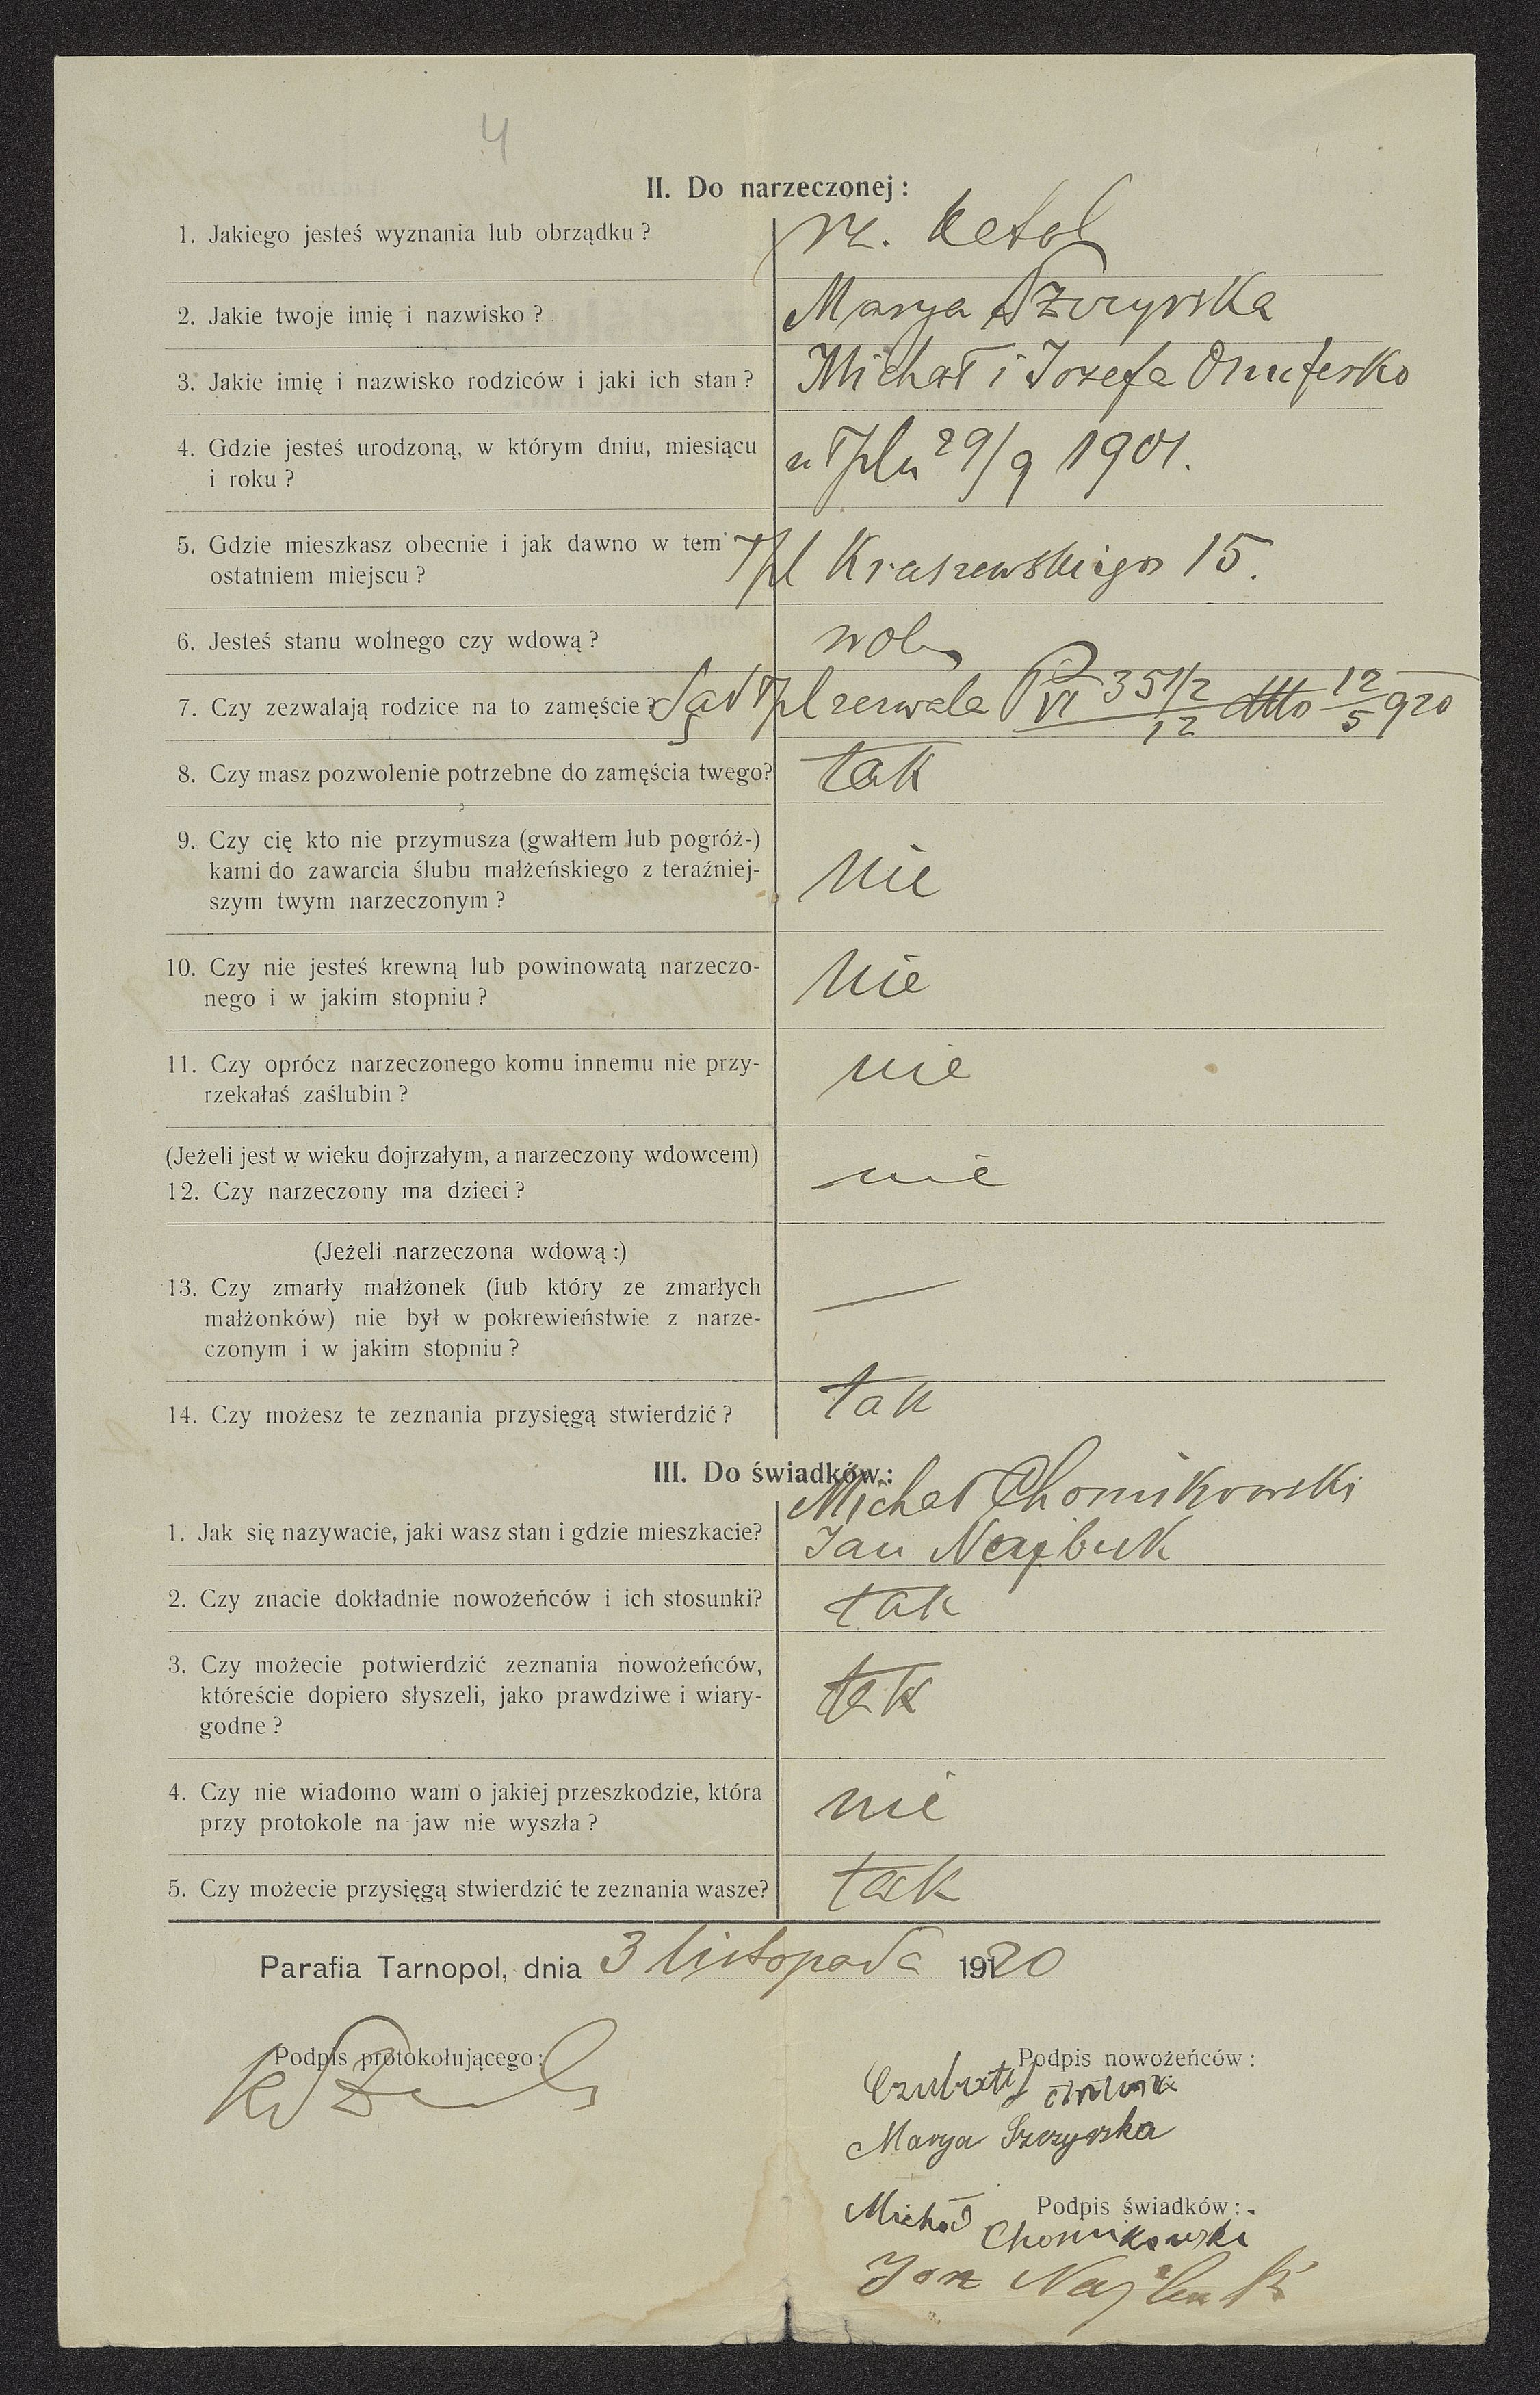 4
II. Do narzeczonej :
1. Jakiego jesteś wyznania lub obrządku ?
rz. katol
2. Jakie twoje imię i nazwisko ?
Marya Szczyrska
3. Jakie imię i nazwisko rodziców i jaki ich stan ?
Michał i Jozefa Onuferko
4. Gdzie jesteś urodzoną, w którym dniu, miesiącu
i roku ?
w Tplu 29/9 1901.
5. Gdzie mieszkasz obecnie i jak dawno w tem
ostatniem miejscu ?
Tpl Kraszewskiego 15.
6. Jesteś stanu wolnego czy wdową ?
wol
7. Czy zezwalają rodzice na to zamęście ?
Sąd Tpl zezwala P VI 351/2 12 dtto 12/5 920
8. Czy masz pozwolenie potrzebne do zamęścia twego?
tak
9. Czy cię kto nie przymusza (gwałtem lub pogróż-)
kami do zawarcia ślubu małżeńskiego z teraźniej-
szym twym narzeczonym ?
nie
10. Czy nie jesteś krewną lub powinowatą narzeczo-
nego i w jakim stopniu ?
nie
11. Czy oprócz narzeczonego komu innemu nie przy-
rzekałaś zaślubin ?
nie
(Jeżeli jest w wieku dojrzałym, a narzeczony wdowcem)
12. Czy narzeczony ma dzieci ?
nie
(Jeżeli narzeczona wdową :)
13. Czy zmarły małżonek (lub który ze zmarłych
małżonków) nie był w pokrewieństwie z narze-
czonym i w jakim stopniu ?
—
14. Czy możesz te zeznania przysięgą stwierdzić ?
tak
III. Do świadków :
Michał Chomikowski
1. Jak się nazywacie, jaki wasz stan i gdzie mieszkacie?
Jan Najbuk
2. Czy znacie dokładnie nowożeńców i ich stosunki?
tak
3. Czy możecie potwierdzić zeznania nowożeńców,
któreście dopiero słyszeli, jako prawdziwe i wiary-
godne ?
tak
4. Czy nie wiadomo wam o jakiej przeszkodzie, która
przy protokole na jaw nie wyszła ?
nie
5. Czy możecie przysięgą stwierdzić te zeznania wasze?
tak
Parafia Tarnopol, dnia 3 listopada 1920
Podpis protokołującego :
Podpis nowożeńców :
Czubaty
Marya Szczyrska
Podpis świadków :
Michał Chomikowski
Jan Najbuk